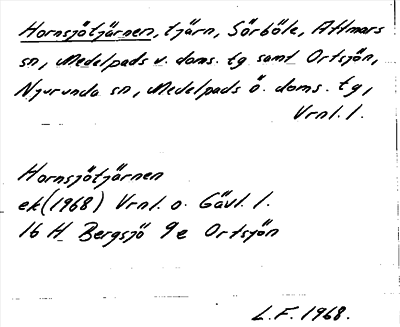 Hornsjötjärnen, tjärn, Sörböle, Attmars
sn, Medelpads v. doms. tg samt Ortsjön,
Njurunda sn, Medelpads ö. doms. tg,
Vrnl. l.
Hornsjötjärnen
ek (1968) Vrnl. o. Gävl. l.
16 H Bergsjö 9e Ortsjön
L.F. 1968.